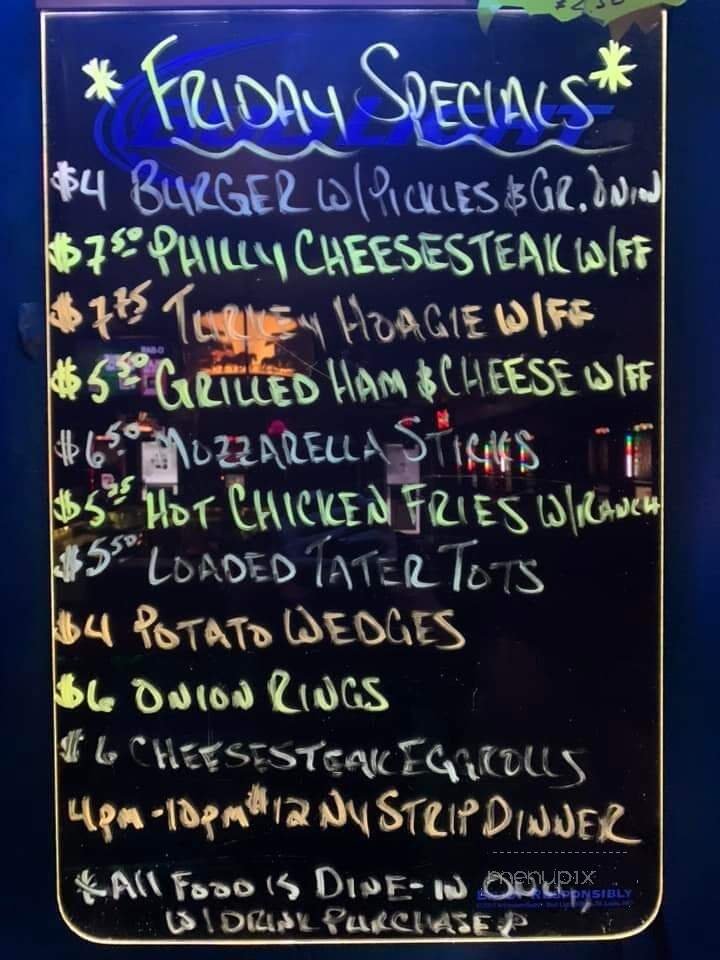 * FRIDAY SPECIALS *
$4 BURGER W/PICKLES & GR. ONION
$7.50 PHILLY CHEESESTEAK W/FF
$7.75 TURKEY HOAGIE W/FF
$5.50 GRILLED HAM & CHEESE W/FF
$6.50 MOZZARELLA STICKS
$5.25 HOT CHICKEN FRIES W/RANCH
$5.50 LOADED TATER TOTS
$4 POTATO WEDGES
$6 ONION RINGS
$6 CHEESESTEAK EGGROLLS
4pm-10pm $12 NY STRIP DINNER
*All FOOD IS DINE-IN ONLY,
W/DRINK PURCHASE
menupix
RESPONSIBLY